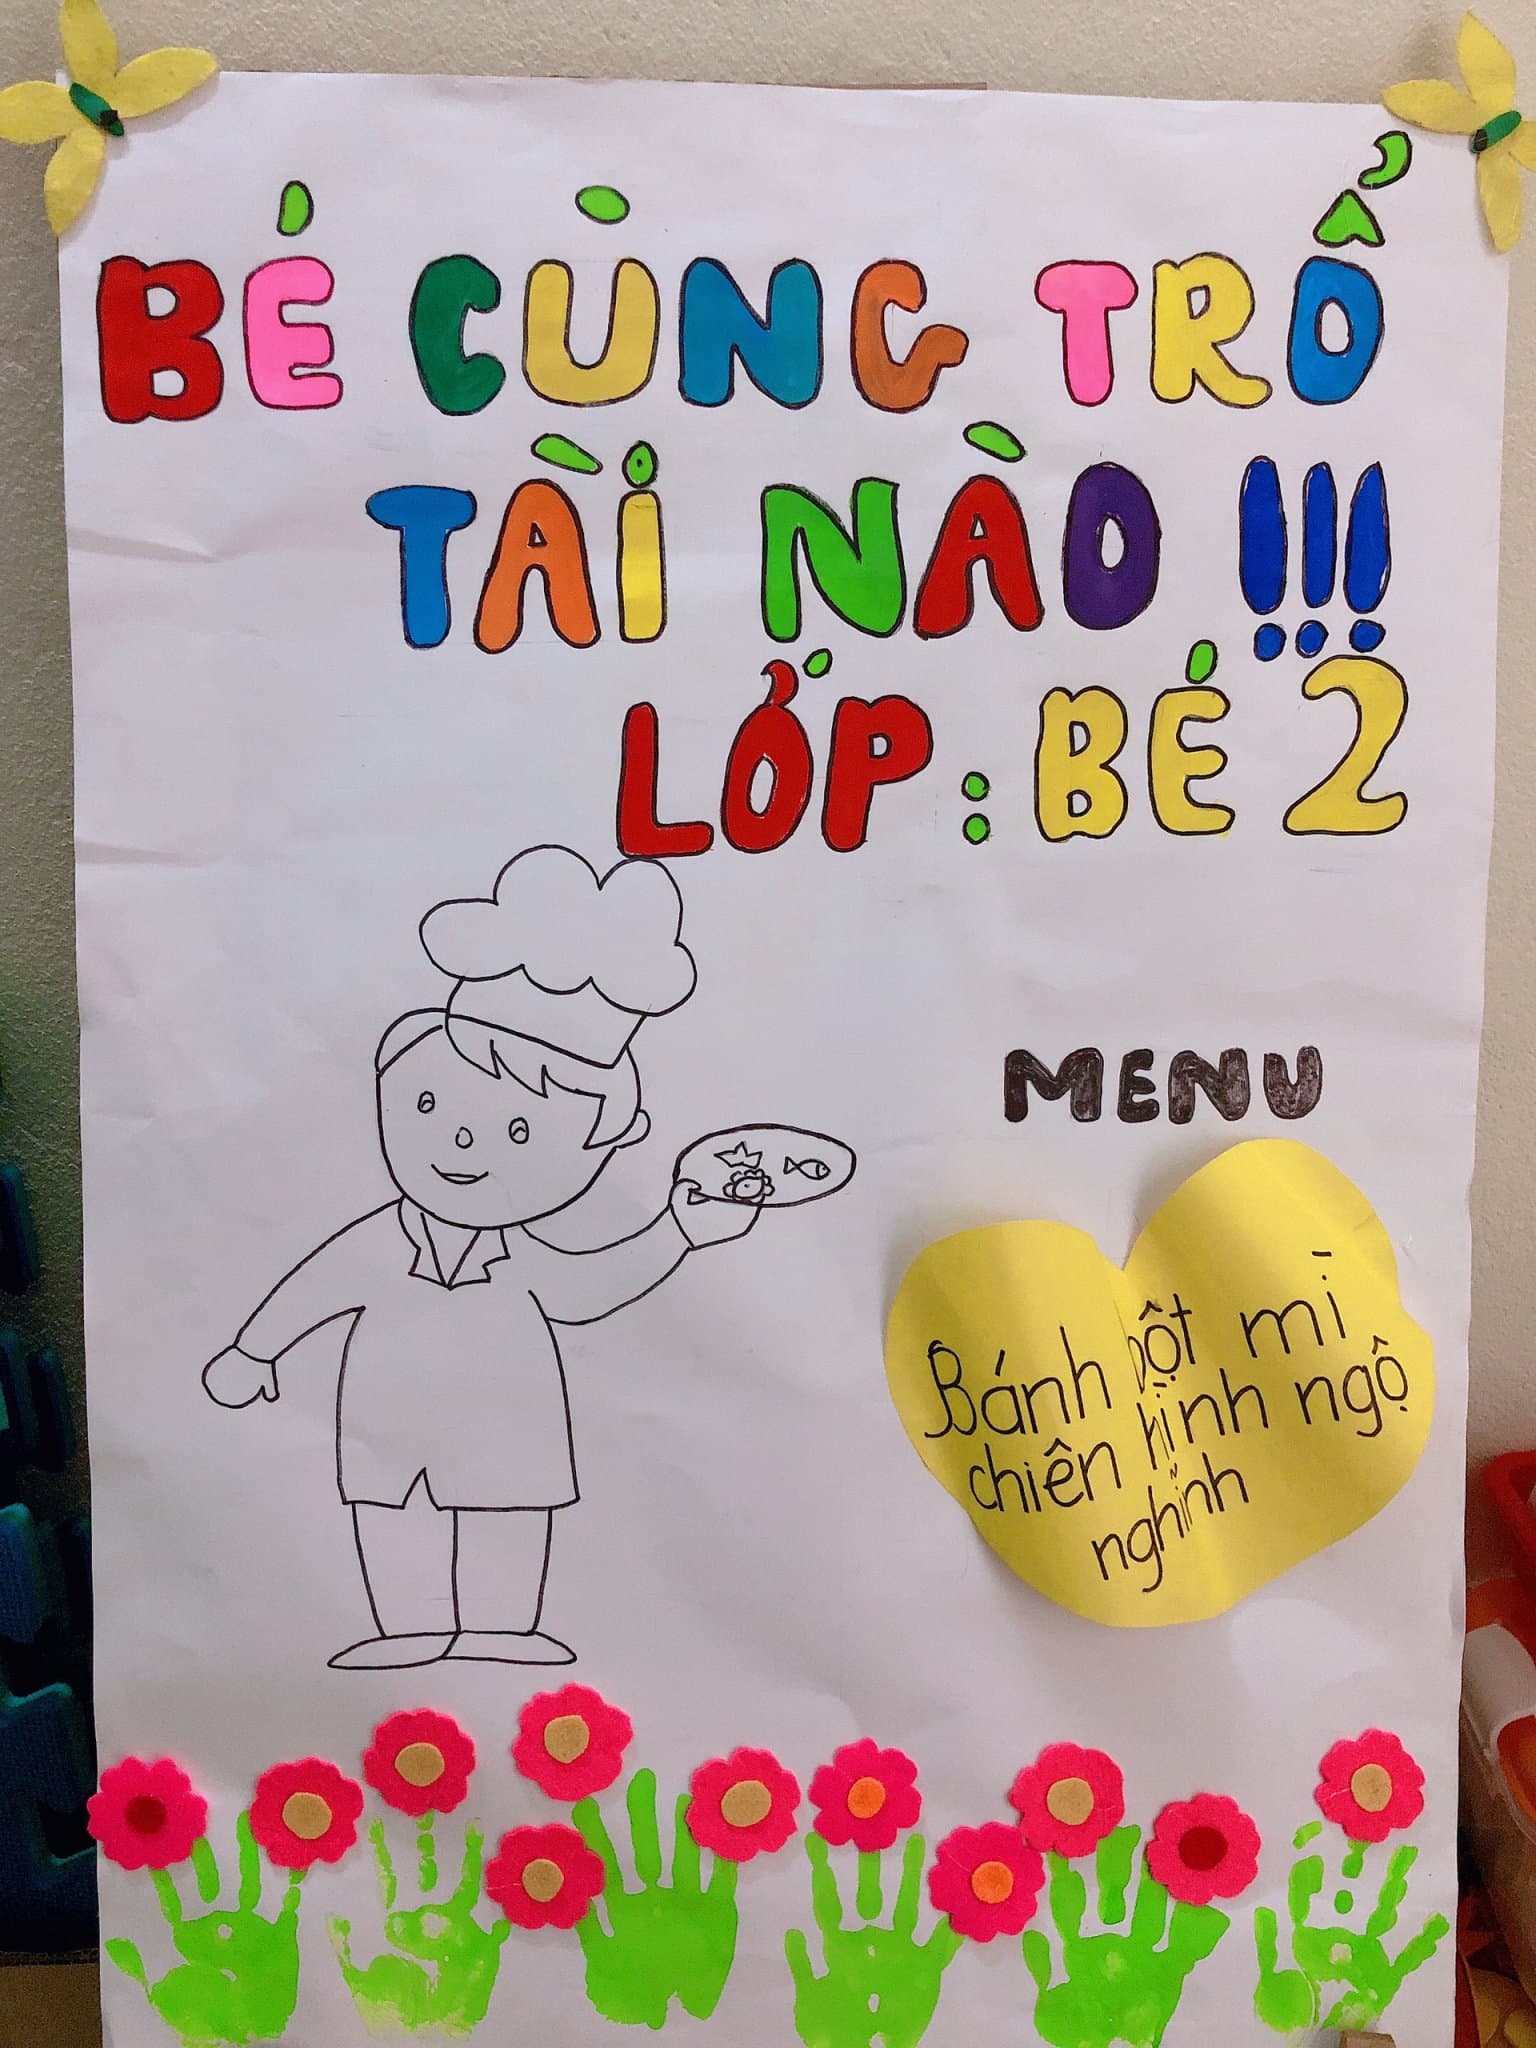 BÉ CÙNG TRỔ
TÀI NÀO !!!
LỚP : BÉ 2
MENU
Bánh bột mì
chiên hình ngộ
nghĩnh